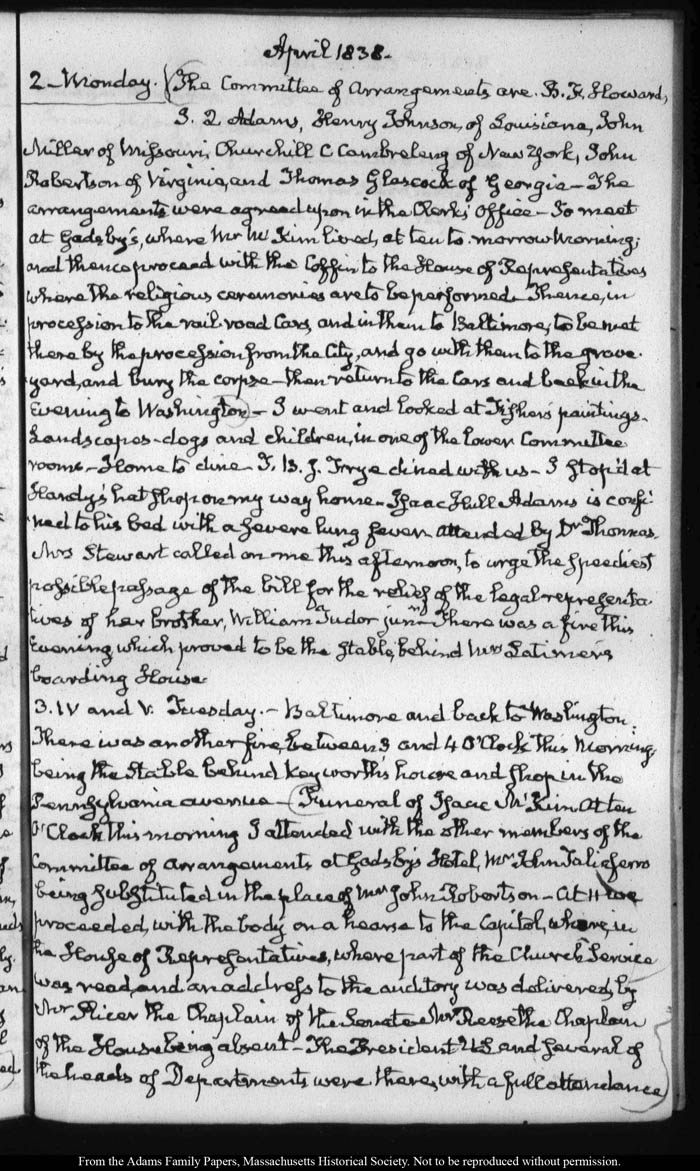 April 1838.
2. Monday. (The Committee of Arrangements are. B. F. Howard,
J. Q Adams, Henry Johnson, of Louisiana, John
Miller of Missouri, Churchill C Cambreleng of New York, John
Robertson of Virginia, and Thomas Glascock of Georgia — The
arrangements were agreed upon in the Clerk's Office — To meet
at Gadsby's, where Mr McKim lived, at ten to-morrow Morning;
and thence proceed with the Coffin to the House of Representatives
where the religious ceremonies are to be performed. Thence, in
procession to the rail-road Cars, and in them to Baltimore, to be met
there by the procession from the City, and go with them to the grave-
yard, and bury the corpse — then return to the Cars and back in the
Evening to Washington) — I went and looked at Fisher's paintings.
Landscapes — dogs and children, in one of the lower Committee
rooms — Home to dine. I. B. J. Frye dined with us — I stop'd at
Handy's hat shop on my way home. Isaac Hull Adams is confi-
ned to his bed with a severe lung fever attended by Dr Thomas.
Mrs Stewart called on me this afternoon, to urge the speediest
possible passage of the bill for the relief of the legal representa-
tives of her brother, William Tudor junr. There was a fire this
Evening which proved to be the stable, behind Mrs Latimer's
boarding House.
3. IV and V. Tuesday. — Baltimore and back to Washington.
There was another fire, between 3 and 4 O'Clock this Morning,
being the stable behind Keyworth's house and shop in the
Pennsylvania avenue — (Funeral of Isaac McKim At ten
O'Clock this morning I attended with the other members of the
Committee of arrangements at Gadsby's Hotel, Mr John Taliaferro
being substituted in the place of Mr John Robertson — At 11 we
proceeded, with the body on a hearse to the Capitol, where, in
the House of Representatives, where part of the Church Service
was read, and an address to the auditory was delivered, by
Mr Slicer the Chaplain of the Senate Mr Reese the Chaplain
of the House being absent — The President U.S. and several of
the heads of Departments were there, with a full attendance
From the Adams Family Papers, Massachusetts Historical Society. Not to be reproduced without permission.